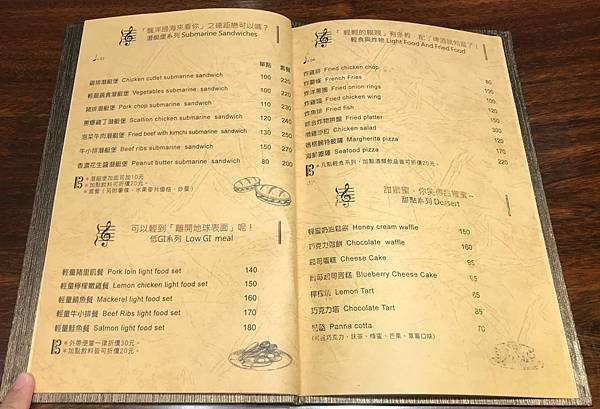 「飄洋過海來看你」之遠距離可以嗎？
潛艇堡系列 Submarine Sandwiches
單點 套餐
雞排潛艇堡 Chicken cutlet submarine sandwich 100 220
輕脆蔬食潛艇堡 Vegetables submarine sandwich 100 220
豬排潛艇堡 Pork chop submarine sandwich 110 230
蔥爆雞丁潛艇堡 Scallion chicken submarine sandwich 120 240
泡菜牛肉潛艇堡 Fried beef with kimchi submarine sandwich 130 250
牛小排潛艇堡 Ribs submarine sandwich 150 270
香濃花生醬潛艇堡 Peanut butter submarine sandwich 80 200
＊潛艇堡加起司加10元
＊加點飲料可折價20元。
可以輕到「離開地球表面」呢！
低GI系列 Low GI meal
輕量豬里肌餐 Pork loin light food set 140
輕量檸檬嫩雞餐 Lemon chicken light food set 150
輕量鯖魚餐 Mackerel light food set 160
輕量牛小排餐 Beef Ribs light food set 170
輕量鮭魚餐 Salmon light food set 180
＊外帶便當一律折價30元。
＊加點飲料皆可折價20元。
輕食與炸物 Light Food And Fried Food
炸雞排 Fried chicken chop
炸薯條 French Fries 80
炸洋蔥圈 Fried onion rings
炸雞翅 Fried chicken wing
炸魚排 Fried fish
綜合炸物拼盤 Fried platter
嫩雞沙拉 Chicken salad
瑪格麗特披薩 Margherita pizza
海鮮披薩 Seafood pizza 170
＊凡點輕食系列，加點酒類飲品皆可折價20元。 220
甜蜜蜜，你笑得甜蜜蜜~
甜點系列 Dessert
蜂蜜奶油鬆餅 Honey cream waffle 150
巧克力鬆餅 Chocolate waffle 160
起司蛋糕 Cheese Cake
藍莓起司蛋糕 Blueberry Cheese Cake
檸檬塔 Lemon Tart
巧克力塔 Chocolate Tart
奶酪 Panna cotta 70